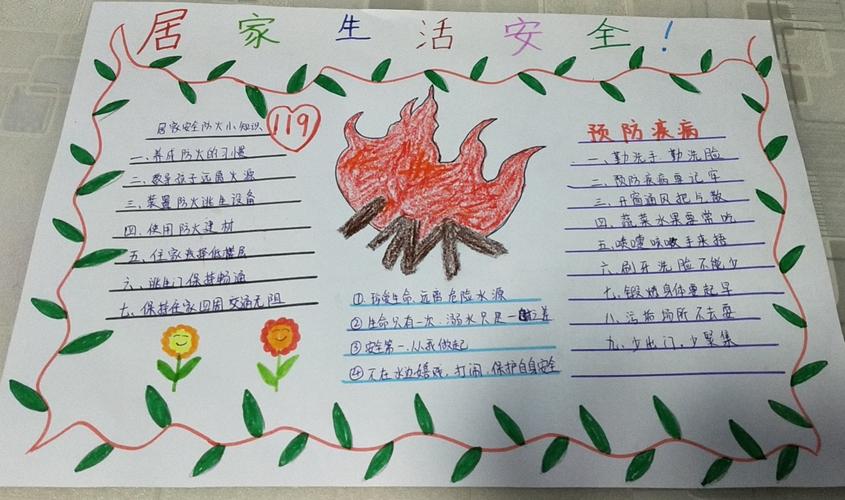 居家生活安全！
居家安全防火小知识
119
一、养成防火的习惯
二、教导孩子远离火源
三、装置防火逃生设备
四、使用防火建材
五、住家选择低楼层
六、逃生门保持畅通
七、保持住家四周交通无阻
①珍爱生命,远离危险水源
②生命只有一次,溺水只是一
③安全第一,从我做起
④不在水边嬉戏,打闹,保护自身安全
预防疾病
一、勤洗手 勤洗脸
二、预防疾病要记牢
三、开窗通风把毒散
四、蔬菜水果要常吃
五、喷嚏咳嗽手来捂
六、刷牙洗脸不能少
七、锻炼身体要起早
八、污垢场所不去耍
九、少出门,少聚集